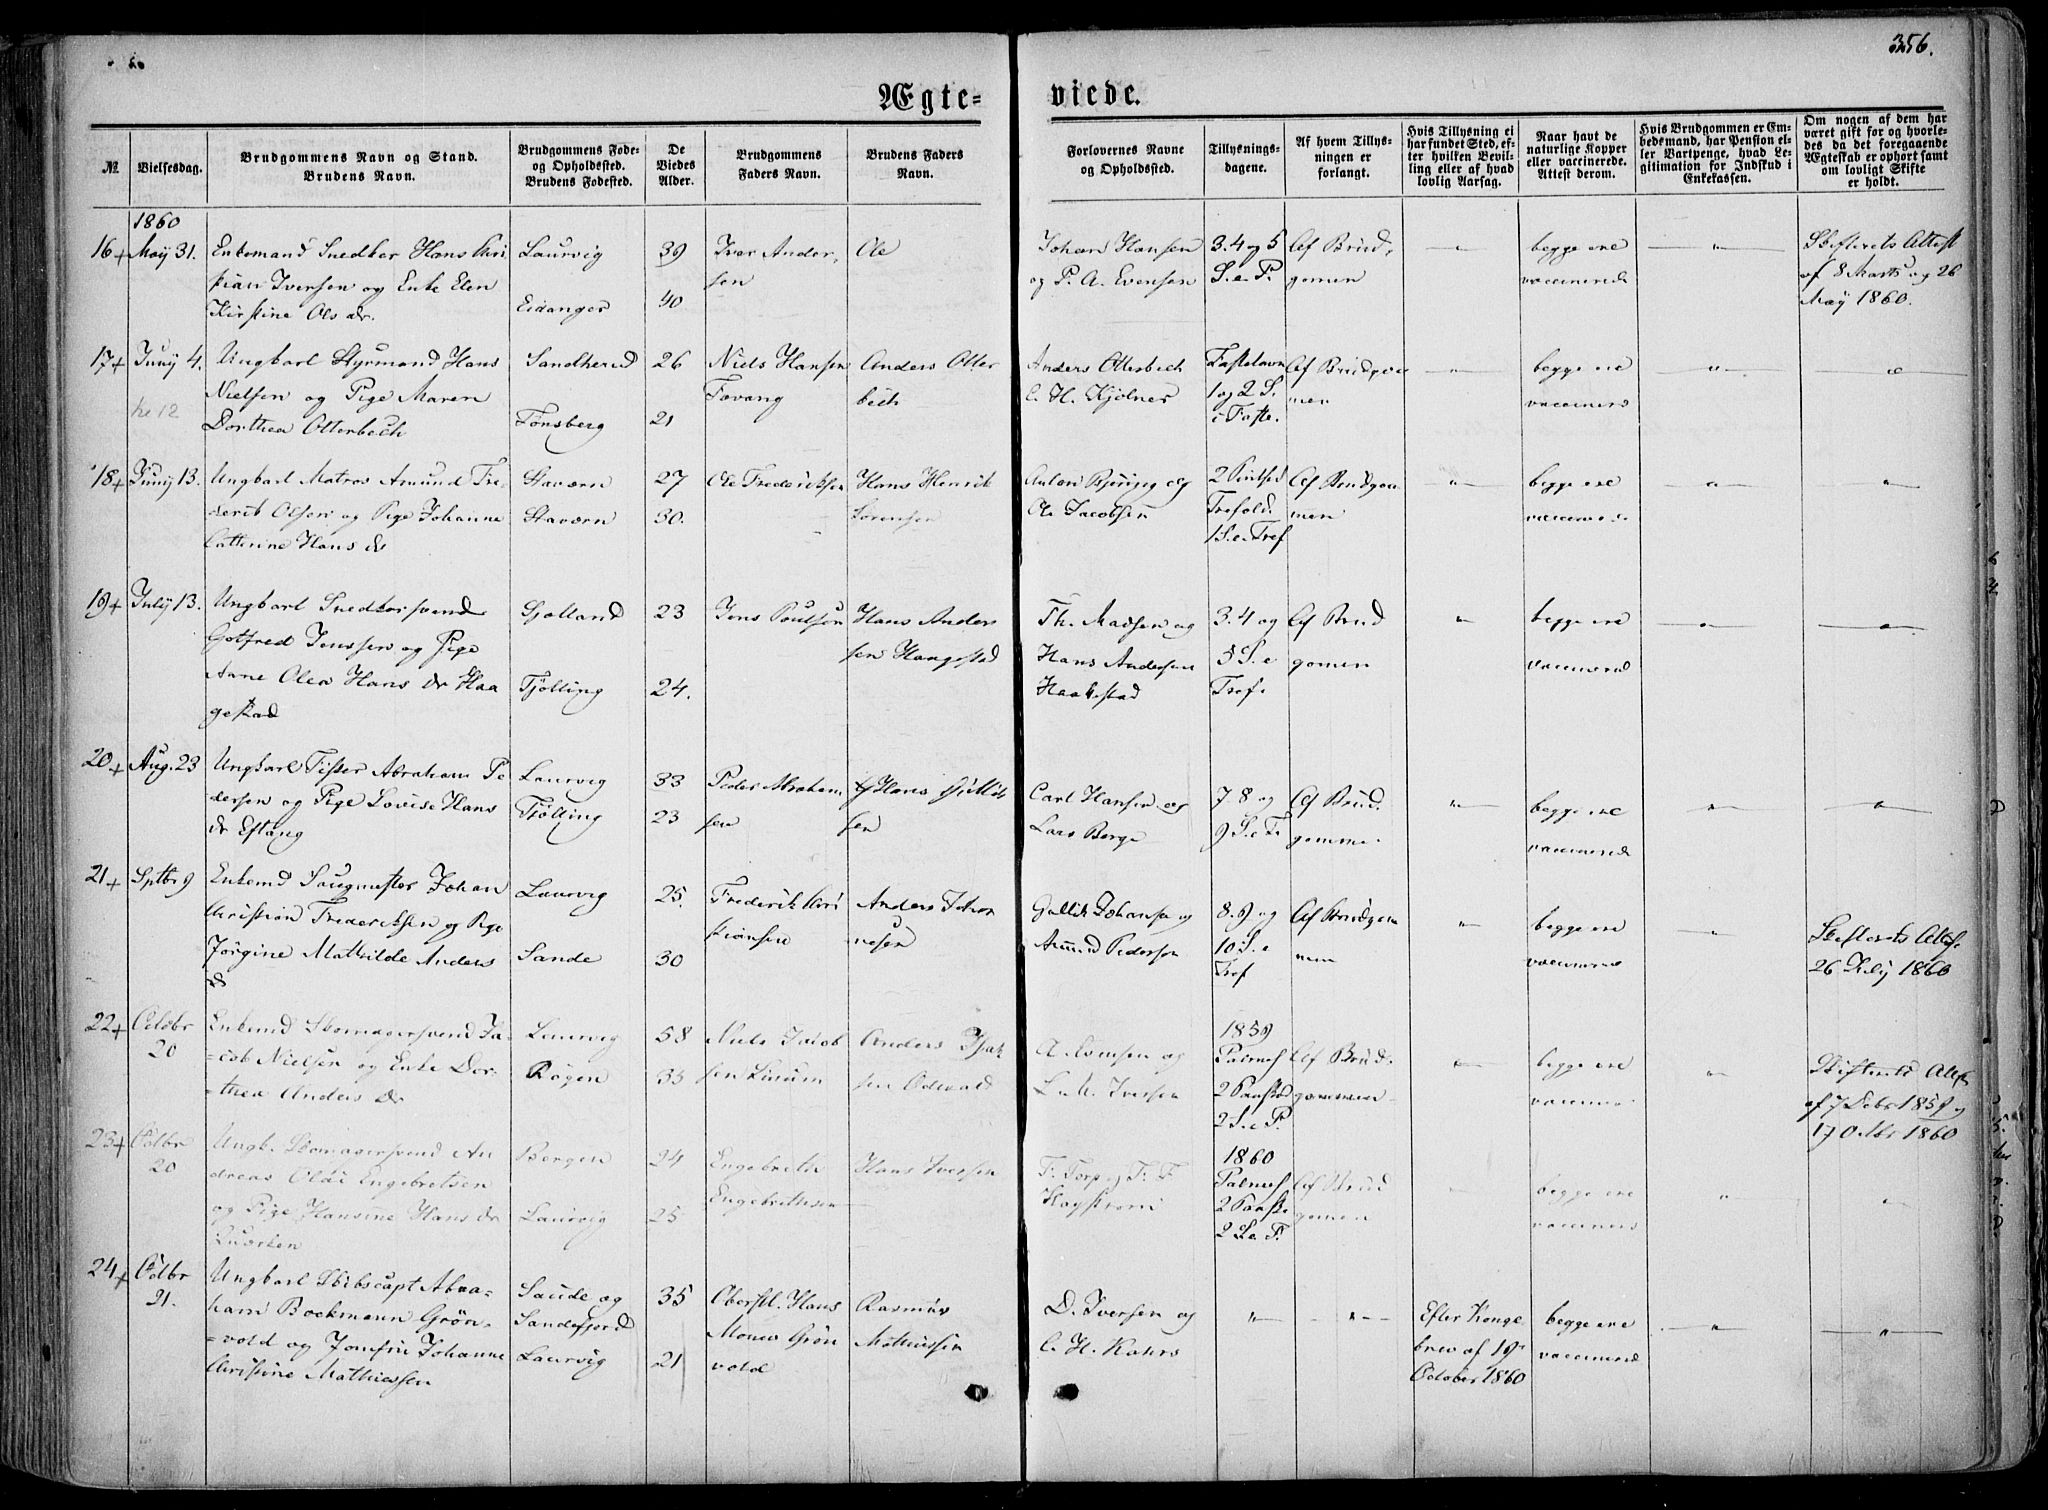 356.
Ægte= viede.
№
Vielsesdag.
Brudgommens Navn og Stand.
Brudens Navn.
Brudgommens Føde-
og Opholdssted.
Brudens Fødested.
De
Viedes
Alder.
Brudgommens
Faders Navn.
Brudens Faders
Navn.
Forlovernes Navne
og Opholdssted.
Tillysnings-
dagene.
Af hvem Tillys-
ningen er
forlangt.
Hvis Tillysning ei
har fundet Sted, ef-
ter hvilken Bevil-
ling eller af hvad
lovlig Aarsag.
Naar havt de
naturlige Kopper
eller vaccinerede.
Attest derom.
Hvis Brudgommen er Em-
bedsmand, har Pension el-
ler Vartpenge, hvad Le-
gitimation for Indskud i
Enkekassen.
Om nogen af dem har
været gift før og hvorle-
des da det foregaaende
Ægteskab er ophørt samt
om lovligt Skifte
er holdt.
1860
16+ May 31.
Enkemand Snedker Hans Kri
stian Iversen og Enke Elen
Kirstine Ols dr.
Laurvig
Eidanger
39
40
Iver Ander,
sen
Ole
Johan Hansen
og P. A. Evensen
3. 4 og 5
S. e. P.
Af Brud,
gomen
begge ere
vaccinerede
Skifterets Attest
af 8 Marts og 26
May 1860.
17+ Juny 4.
Ungkarl Styrmand Hans
Nielsen og Pige Maren
Dorthea Otterbech
Sandherred
Tønsberg
26
21
Niels Hansen
Favang
Anders Otter
bech
Anders Otterbech
C. H. Kjølner
Fastelavn
1 og 2 S.
i Faste.
Af Brudgom
men
begge ere
vaccinere
18+ Juny 13.
Ungkarl Matros Amund Fre-
derik Olsen og Pige Johanne
Cathrine Hans dr
Staværn
Staværn
27
30.
Ole Frederiksen
Hans Henrik
Sørensen
Anton Bjering og
Ole Jacobsen
2 Pintsed
Trefold.
1 S. e. Tref
Af Brudgom
men
begge ere
19+ July 13.
Ungkarl Snedkersvend
Gotfred Jenssen og Pige
Anne Olea Hans dr Haa
gestad
Gotland
Tjølling
23
24.
Jens Poulsen
Hans Anders
sen Haugestad
Th. Madsen og
Hans Andersen
Haakestad
3. 4 og
5 S. e
Tref.
Af Brud
gomen
begge ere
vaccinered
20+ Aug. 23
Ungkarl Fisker Abraham Pe
dersen og Pige Lovise Hans
dr Eftang
Laurvig
Tjølling
33
23
Peder Abraham
sen
Hans Gullik
sen
Carl Hansen og
Lars Berge
7 8 og
9 S. e T.
Af Brud.
gomme
begge ere
vaccinerede
21+ Sptbr 9
Enkemd Saugmester Johan
Christian Frederiksen og Pige
Jørgine Mathilde Anders
dr
Laurvig
Sande
25.
30
Frederik Kri
stiansen
Anders Johan
nesen
Gullik Johansen og
Amund Pedersen
8. 9 og
10 S. e
Tref
Af Brudgom
men
begge ere
vaccinerede
Skifterets Attest
26 July 1860
22+ Octobr
20
Enkemd Skomagersvend Ja-
=cob Nielsen og Enke Dor-
=thea Anders dr
Laurvig
Røgen
58
35
Niels Jacob
sen
Anders Isak
sen
A. Evensen og
L. M. Iversen
1859
Palmes
2 Paaske
2 S. e. P.
Af Brud.
gommen
begge ere
Skifterets Attest
af 7 Decbr 1859 og
17 Octbr 1860
23+ Octbr
20
Ungk. Skomagersvend An
dreas Olai Engebretsen
og Pige Hansine Hans dr
Bergen
Laurvig
24
25
Engebreth
Engebrethsen
Hans Iversen
F. Torp og F. F.
Hagstrøm
1860
Palmes
2 Paaske
2 S. e. P.
Af Brud
gomen
begge ere
24+ Octbr
21.
Ungkarl Skibscapt Abra-
ham Bockmann Grøn-
=vold og Jomfru Johanne
Christine Mathiessen
Saude og
Sandefjord
Laurvig
35
21
Oberstl. Hans
Grøn
vold
Rasmus
Mathiessen
D. Iversen og
C. H. Kahrs
Efter Konge
brev af 19
October 1860
begge ere
vaccinered